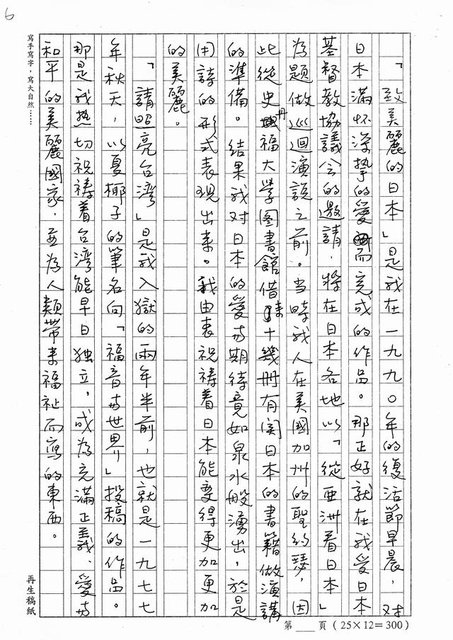 6
寫手寫字．寫大自然……
「致美麗的日本」是我在一九九〇年的復活節早晨，对
日本滿怀深摯的愛而完成的作品。那正好就在我受日本
基督教協議会的邀請，將在日本各地以「從亜洲看日本」
為題做巡迴演說之前。当時我人在美國加州的聖約瑟，因
此從史丹福大学图書館借来十幾冊有関日本的書籍做演講
的準備。結果我对日本的愛与期待竟如泉水般湧出，於是
用詩的形式表现出来。我由衷祝禱着日本能变得更加更加
的美麗。
「請照亮台湾」是我入獄的兩年半前，也就是一九七七
年秋天，以夏椰子的筆名向「福音与世界」投稿的作品。
那是我热切祝禱着台湾能早日独立，成為充滿正義、愛与
和平的美麗國家，並為人類帶来福祉而寫的東西。
再生稿紙
第　頁（25×12＝300）